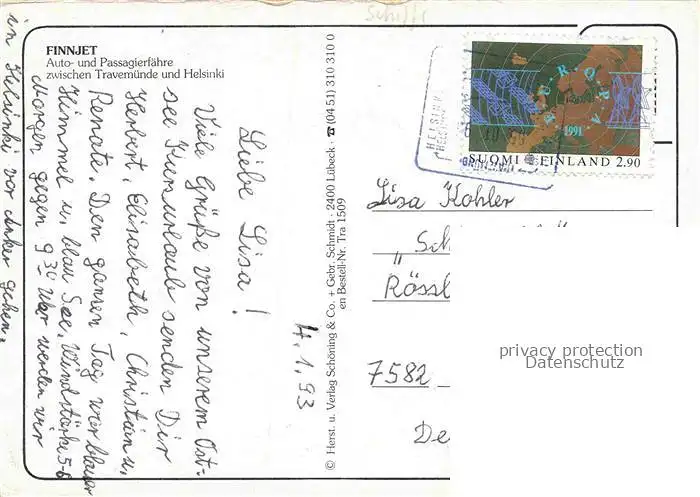 Schiff
FINNJET
Auto- und Passagierfähre
zwischen Travemünde und Helsinki
4.1.93
Liebe Lisa!
Viele Grüße von unserem Ost-
see Kurzurlaub senden Dir
Herbert, Elisabeth, Christian u.
Renate. Den ganzen Tag war blauer
Himmel u. blau See, Windstärke 5-6
Morgen gegen 9³⁰ Uhr werden wir
in Helsinki vor Anker gehen.
© Herst. u. Verlag Schöning & Co. + Gebr. Schmidt · 2400 Lübeck · ☎ (04 51) 310 310 0
en Bestell-Nr. Tra 1509
HELSINKI
EUROPA
1991
SUOMI FINLAND 2.90
Lisa Kohler
„Sch
Rössl
7582
De
privacy protection
Datenschutz